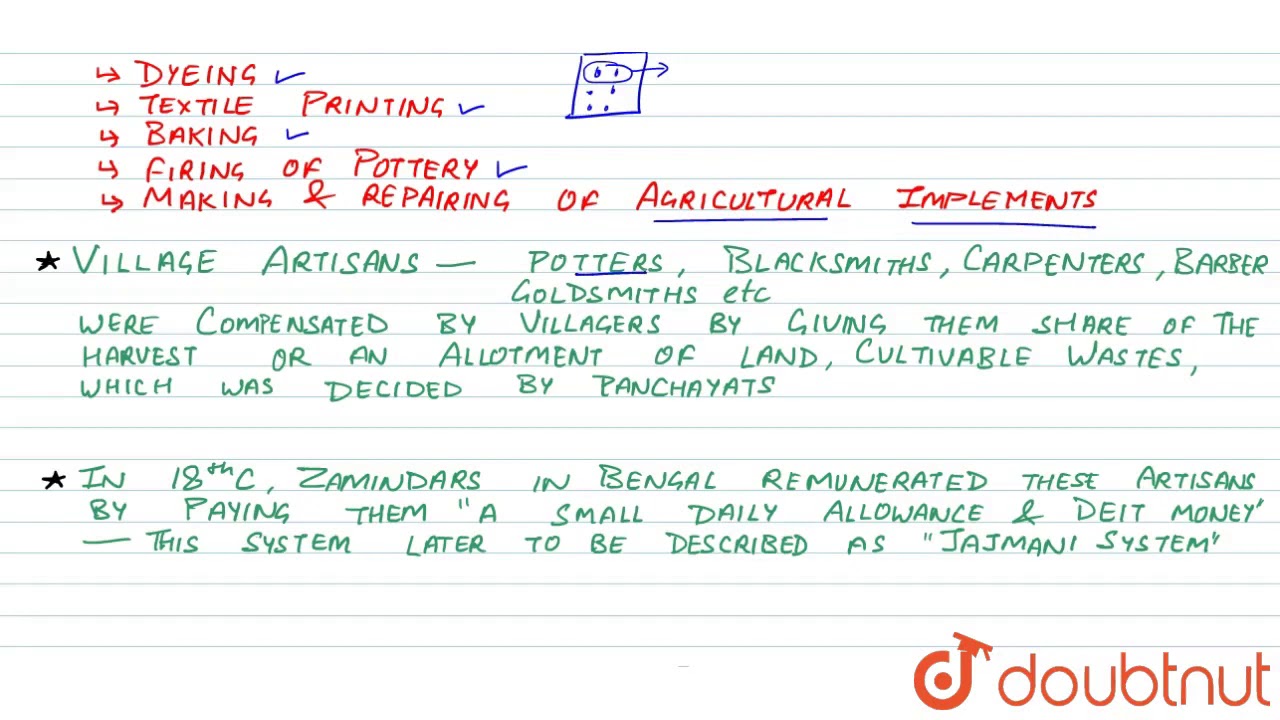 ↳ DYEING ✓
↳ TEXTILE PRINTING ✓
↳ BAKING ✓
↳ FIRING OF POTTERY ✓
↳ MAKING & REPAIRING OF AGRICULTURAL IMPLEMENTS
★ VILLAGE ARTISANS — POTTERS, BLACKSMITHS, CARPENTERS, BARBER
GOLDSMITHS etc
WERE COMPENSATED BY VILLAGERS BY GIVING THEM SHARE OF THE
HARVEST OR AN ALLOTMENT OF LAND, CULTIVABLE WASTES,
WHICH WAS DECIDED BY PANCHAYATS
★ IN 18th C, ZAMINDARS IN BENGAL REMUNERATED THESE ARTISANS
BY PAYING THEM "A SMALL DAILY ALLOWANCE & DEIT MONEY"
— THIS SYSTEM LATER TO BE DESCRIBED AS "JAJMANI SYSTEM"
doubtnut